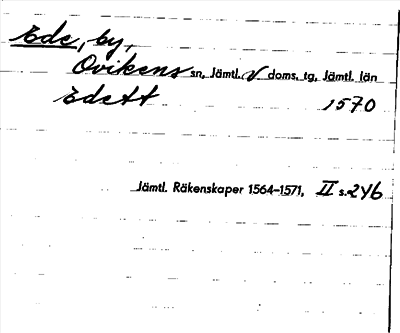 Ede, by,
Ovikens sn, Jämtl. V doms. tg, Jämtl. län
Edett 1570
Jämtl. Räkenskaper 1564-1571, II s. 246